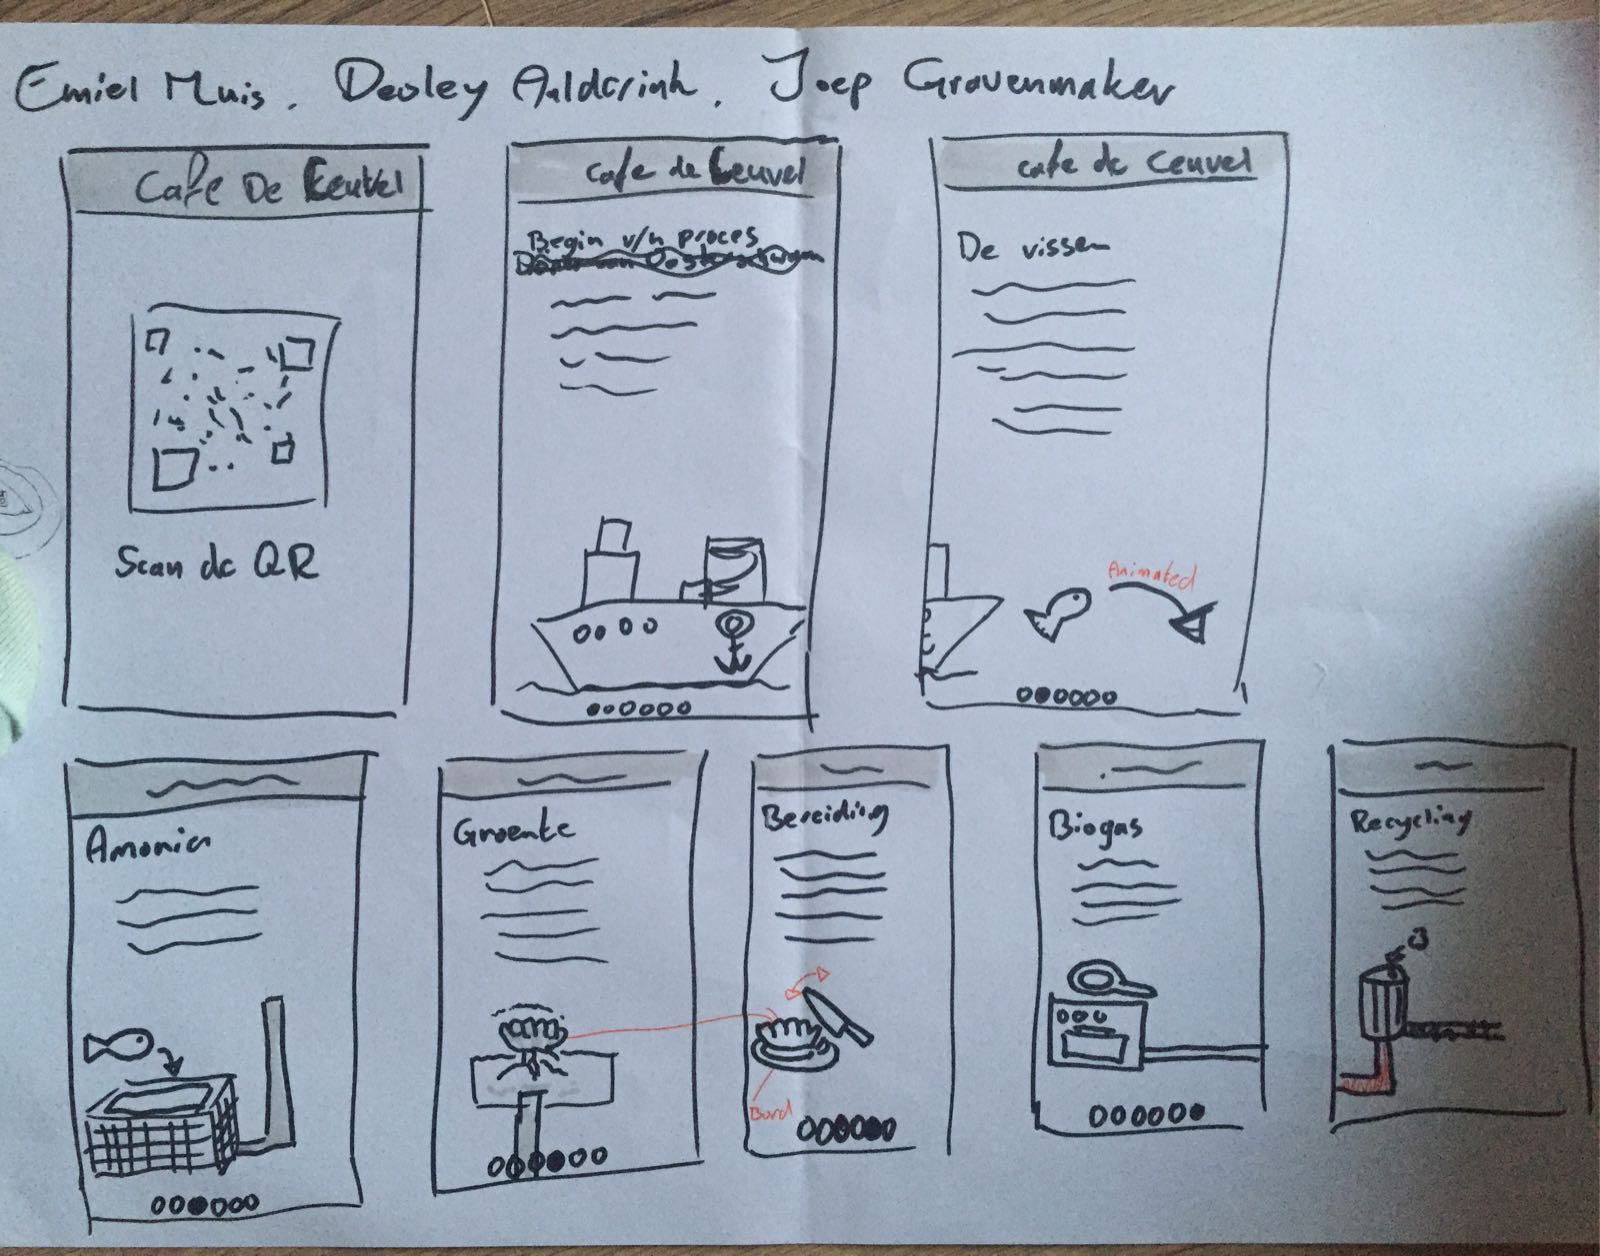 Emiel Muis, Devley Aalderink, Joep Gravenmaker
Cafe De Ceuvel
Scan de QR
cafe de Ceuvel
Begin v/h proces
cafe de Ceuvel
De vissen
Animated
Amonia
Groente
Bereiding
Bord
Biogas
Recycling